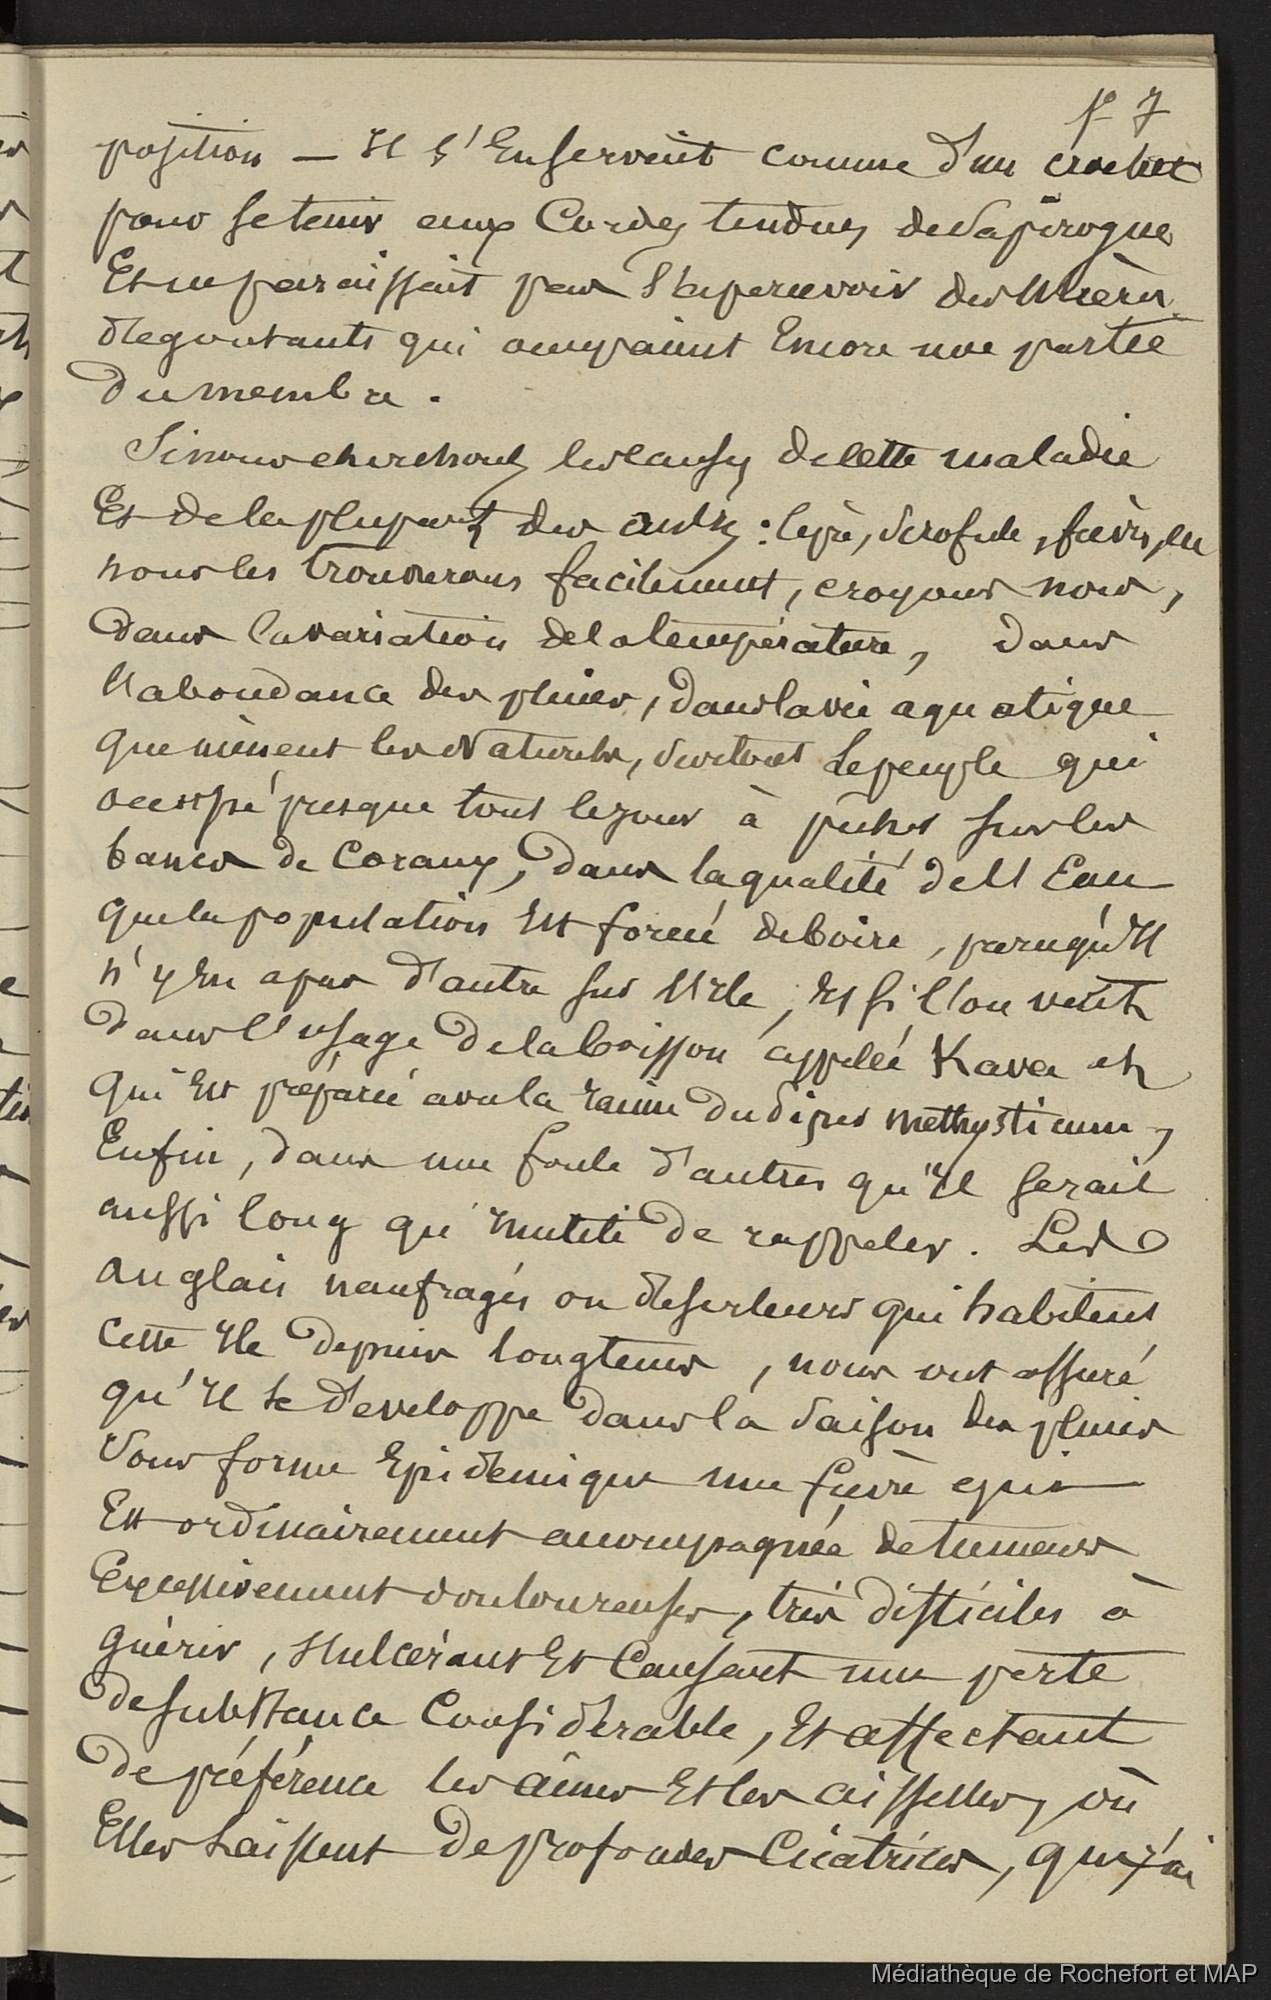 f 7
position — Il s'en servait comme d'un crochet
pour se tenir aux cordes tendues de sa pirogue
Et ne paraissait pas s'apercevoir des ulcères
degoutants qui occupaient Encore une partie
du membre.
Si nous cherchons les causes de cette maladie
Et de la plupart des autres : lèpre, scrofule, fièvre, etc
nous les trouverons facilement, croyons nous,
dans la variation de la température, dans
l'abondance des pluies, dans la vie aquatique
que mènent les Naturels, surtout le peuple qui
occupé presque tous les jours à pêcher sur les
bancs de coraux, dans la qualité de l'Eau
que la population Est forcée de boire, parcequ'Il
n'y En a pas d'autre sur l'Ile, Et si l'on veut
dans l'usage de la boisson appelée Kava et
qui Est préparée avec la racine du Piper methysticum,
Enfin, dans une foule d'autres qu'Il serait
aussi long qu'Inutile de rappeler. Les
anglais naufragés ou déserteurs qui habitent
cette Ile depuis longtems, nous ont assuré
qu'Il se développe dans la saison des pluies
sous forme Epidemique une fièvre qui
Est ordinairement accompagnée de tumeurs
Excessivement douloureuses, très difficiles à
guérir, s'ulcérant Et causant une perte
de substance considérable, Et affectant
de préférence les aînes Et les aisselles, où
Elles laissent de profondes cicatrices, que j'ai
Médiathèque de Rochefort et MAP